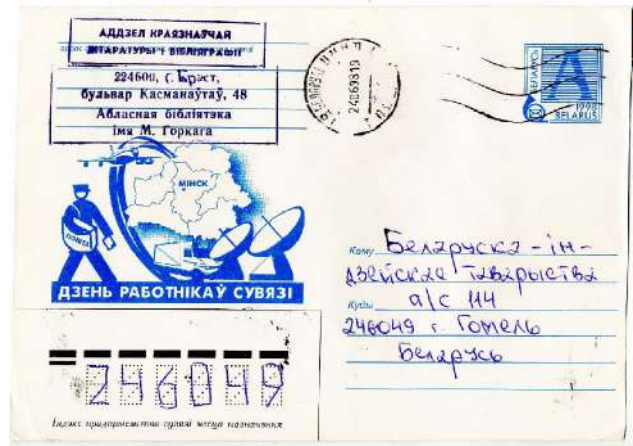 АДДЗЕЛ КРАЯЗНАЎЧАЯ
ЛІТАРАТУРЫ І БІБЛІЯГРАФІІ
224600, г. Брэст,
бульвар Касманаўтаў, 48
Абласная бібліятэка
імя М. Горкага
240698 19
БЕЛАРУСЬ
A
1998
BELARUS
МІНСК
ПОШТА
ДЗЕНЬ РАБОТНІКАЎ СУВЯЗІ
Каму Беларуска-ін-
дзейскае таварыства
Куды а/с 114
246049 г. Гомель
Беларусь
246049
Індэкс прадпрыемства сувязі месца назначэння